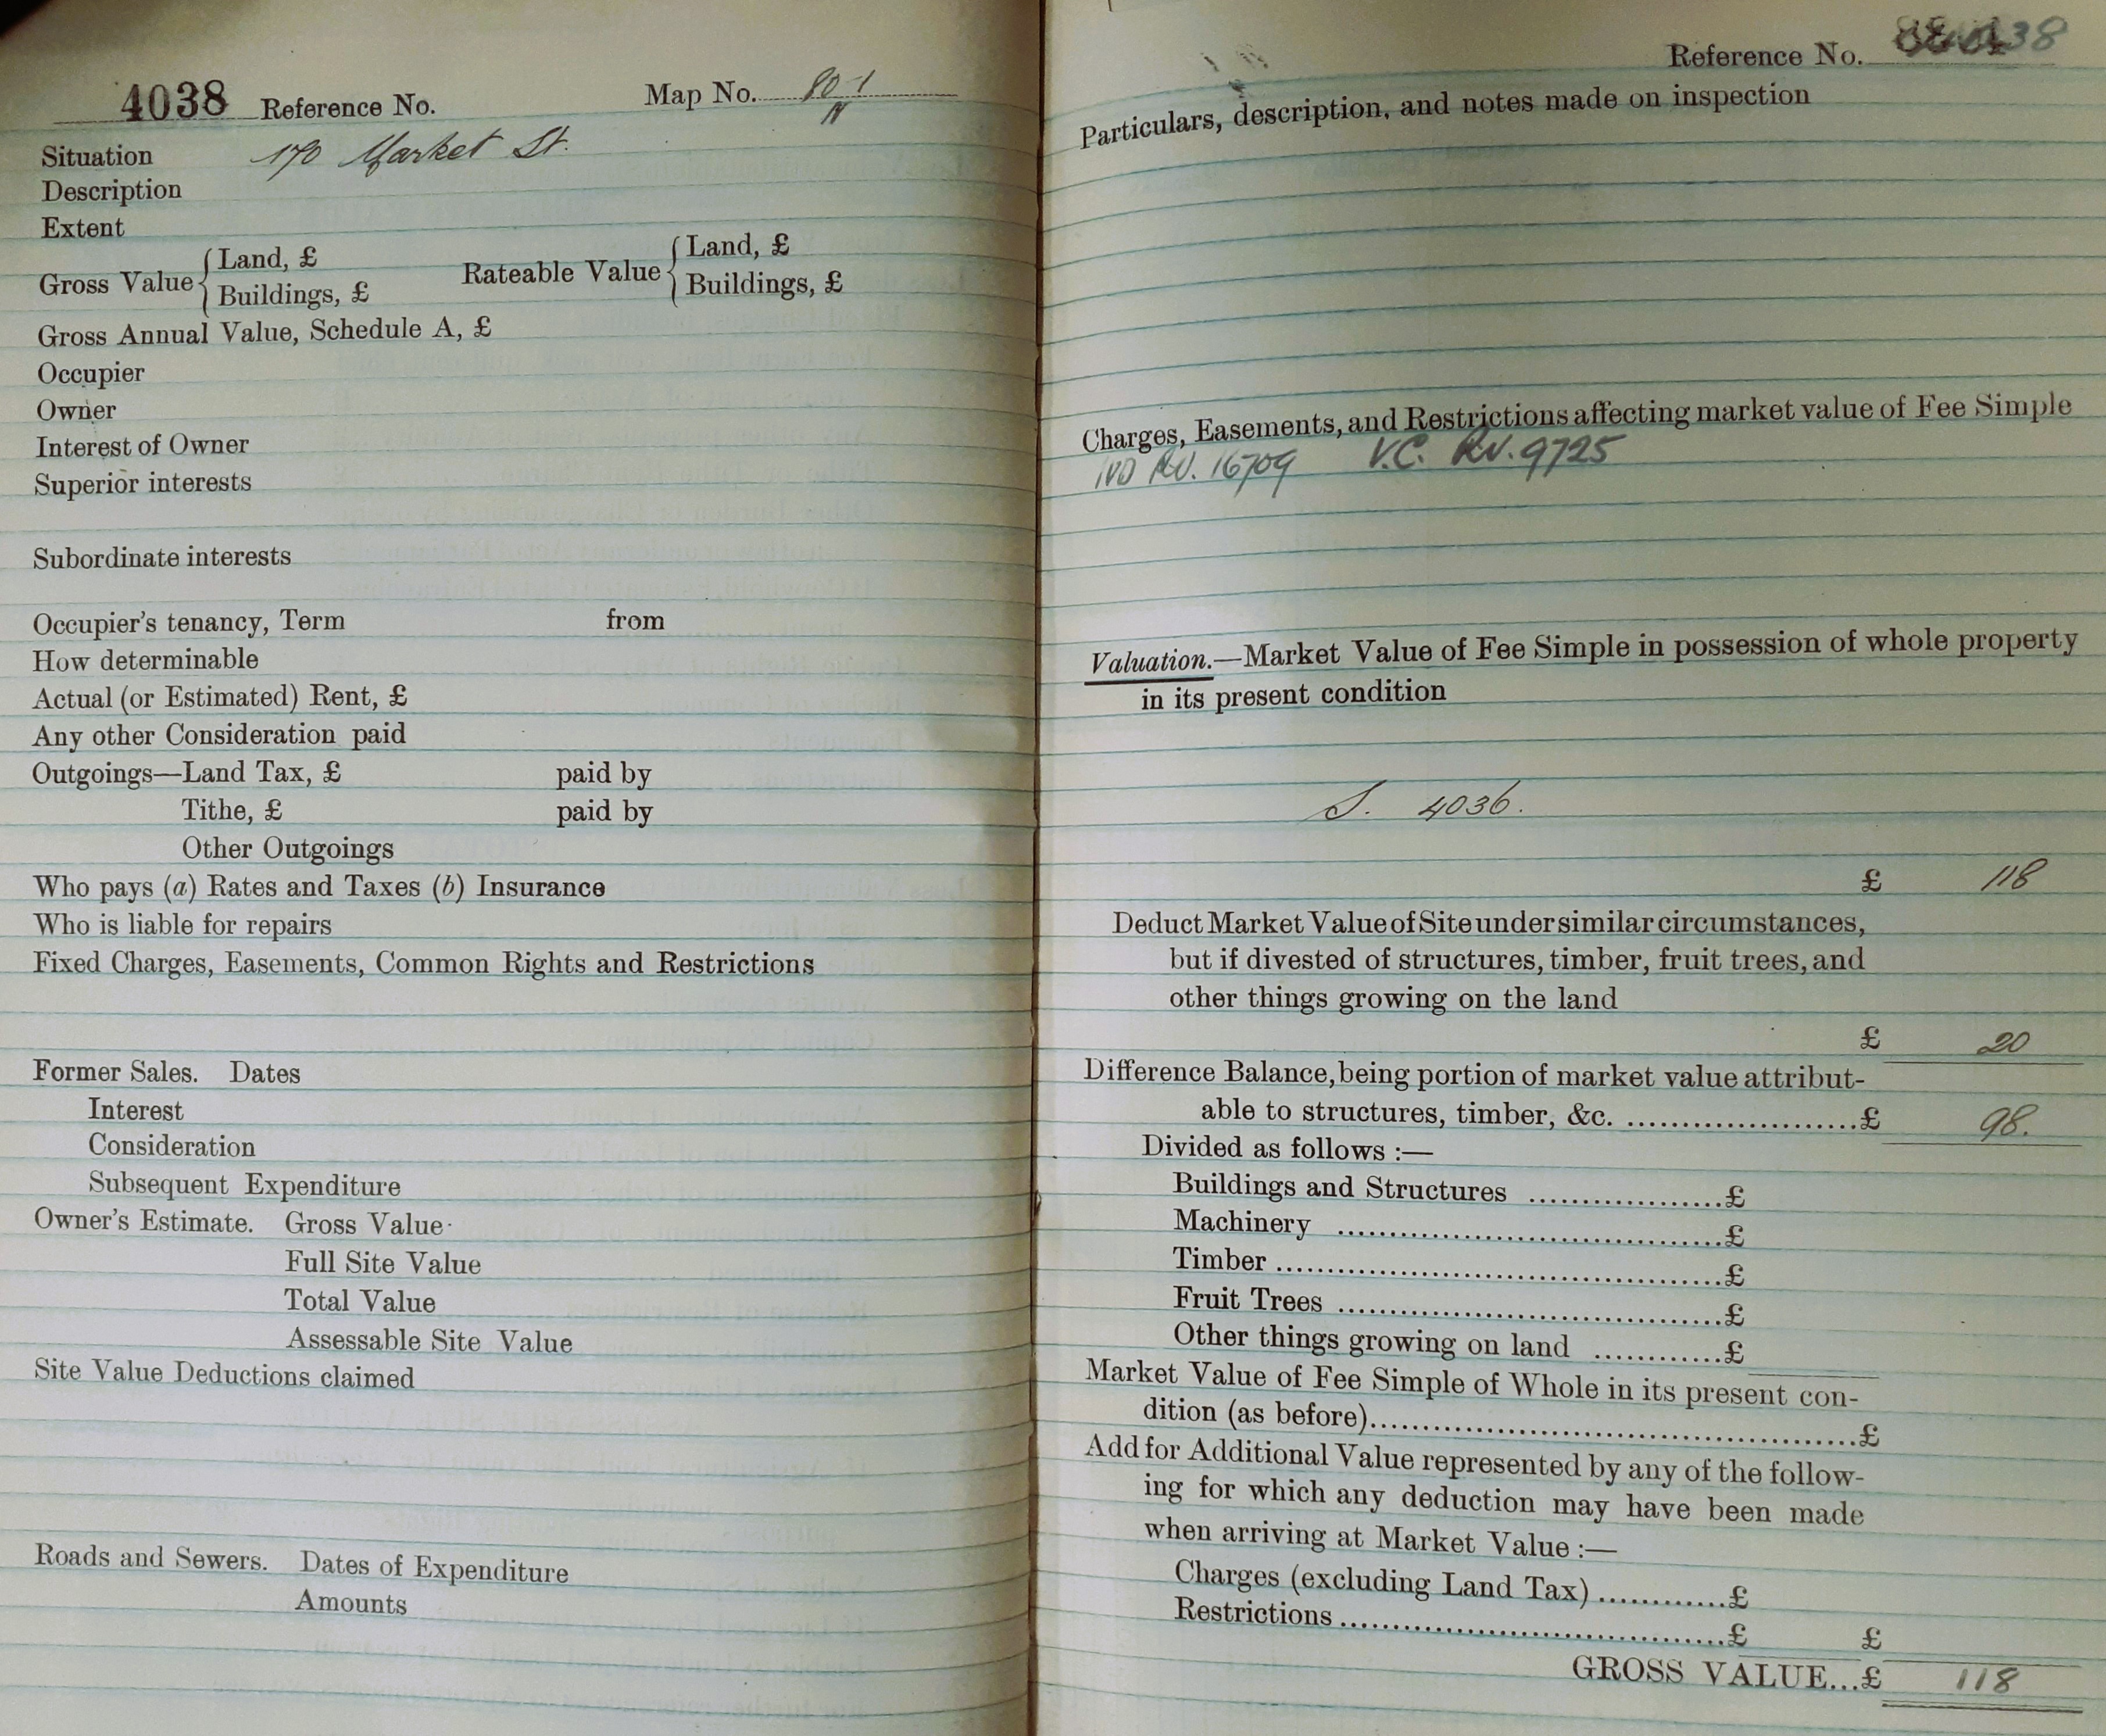 4038 Reference No. Map No. 80-1
N
Situation 170 Market St.
Description
Extent
Gross Value { Land, £ Rateable Value { Land, £
Buildings, £ Buildings, £
Gross Annual Value, Schedule A, £
Occupier
Owner
Interest of Owner
Superior interests
Subordinate interests
Occupier's tenancy, Term from
How determinable
Actual (or Estimated) Rent, £
Any other Consideration paid
Outgoings—Land Tax, £ paid by
Tithe, £ paid by
Other Outgoings
Who pays (a) Rates and Taxes (b) Insurance
Who is liable for repairs
Fixed Charges, Easements, Common Rights and Restrictions
Former Sales. Dates
Interest
Consideration
Subsequent Expenditure
Owner's Estimate. Gross Value
Full Site Value
Total Value
Assessable Site Value
Site Value Deductions claimed
Roads and Sewers. Dates of Expenditure
Amounts
Reference No. 38
Particulars, description, and notes made on inspection
Charges, Easements, and Restrictions affecting market value of Fee Simple
IVD RV. 16709 V.C. RV. 9725
Valuation.—Market Value of Fee Simple in possession of whole property
in its present condition
S. 4036.
£ 118
Deduct Market Value of Site under similar circumstances,
but if divested of structures, timber, fruit trees, and
other things growing on the land
£ 20
Difference Balance, being portion of market value attribut-
able to structures, timber, &c. ......................£ 98.
Divided as follows :—
Buildings and Structures ..................£
Machinery .....................................£
Timber ...........................................£
Fruit Trees .....................................£
Other things growing on land ............£
Market Value of Fee Simple of Whole in its present con-
dition (as before)..............................................£
Add for Additional Value represented by any of the follow-
ing for which any deduction may have been made
when arriving at Market Value :—
Charges (excluding Land Tax) ............£
Restrictions .....................................£ £
GROSS VALUE...£ 118